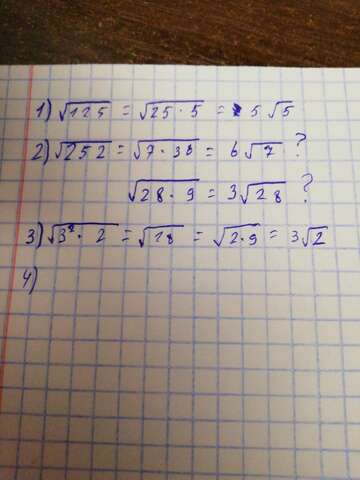 1) √125 = √25·5 = 5√5
2) √252 = √7·38 = 6√7 ?
√28·9 = 3√28 ?
3) √3²·2 = √18 = √2·9 = 3√2
4)